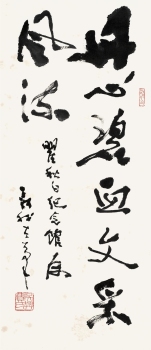 丹心碧血文采
风流
瞿秋白纪念馆存